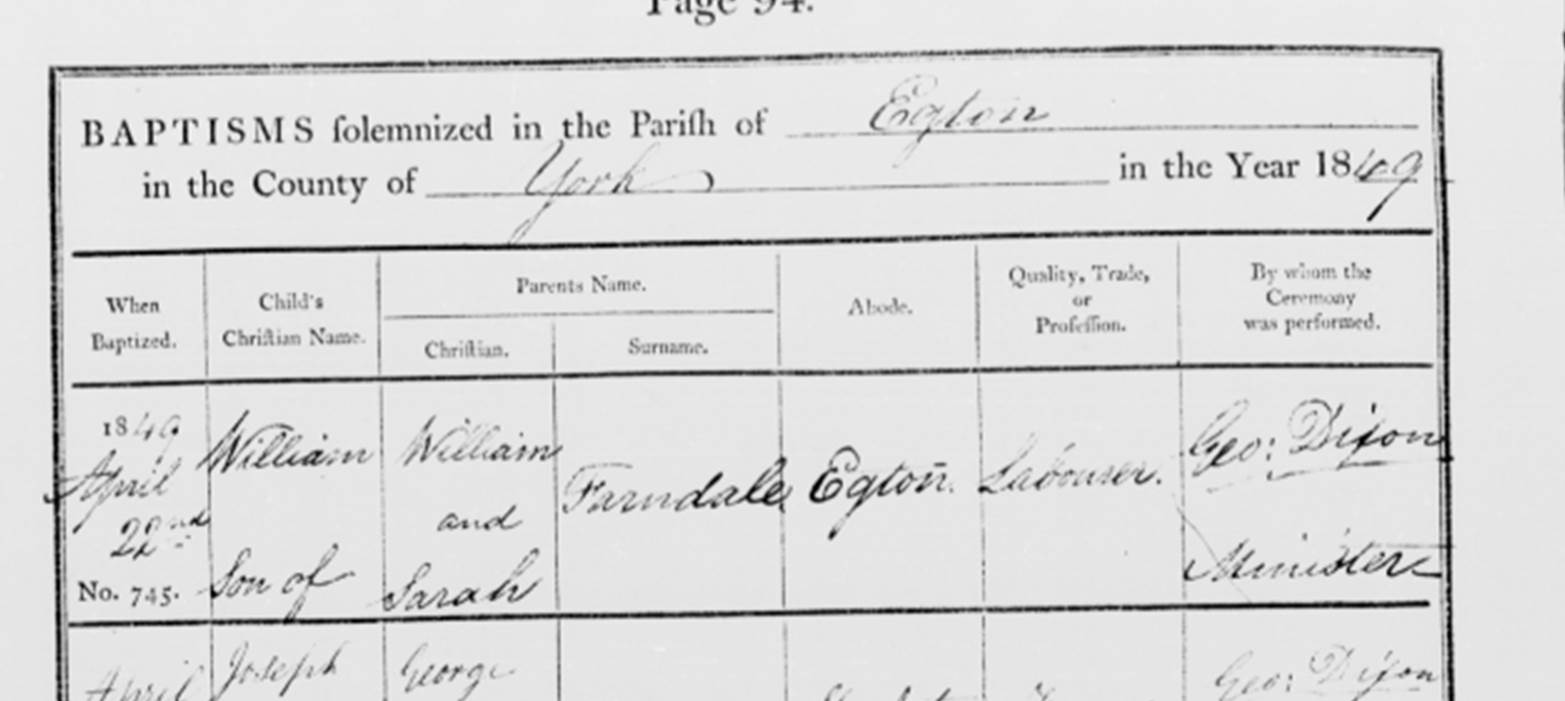 Page 94.
BAPTISMS ſolemnized in the Pariſh of Egton
in the County of York in the Year 1849
When Baptized.
Child's Chriſtian Name.
Parents Name.
Chriſtian.
Surname.
Abode.
Quality, Trade, or Profeſſion.
By whom the Ceremony was performed.
1849
April
22nd
No. 745.
William
Son of
William
and
Sarah
Farndale
Egton.
Labourer.
Geo: Dixon
Minister
April
Joseph
George
Geo: Dixon